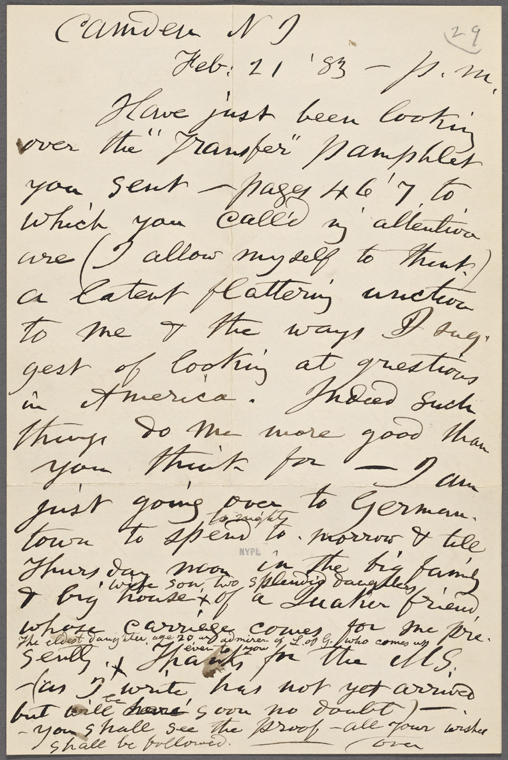 29
Camden N J
Feb: 21 '83 – p. m.
Have just been looking
over the "Transfer" pamphlet
you sent – pages 46 '7, to
which you call'd my attention
are (I allow myself to think)
a latent flattering unction
to me & the ways I sug-
gest of looking at questions
in America. Indeed such
things do me more good than
you think for — I am
just going over to German-
to-night
town to spend to-morrow & till
Thursday noon in the big family
with son, two splendid daughters
& big house x of a Quaker friend
whose carriage comes for me pre-
The eldest daughter, age 20 an admirer of L. of G. who comes up
ever to you
sently. x Thanks for the MS.
– (as I write has not yet arrived
but will be here soon no doubt) –
– you shall see the proof – all your wishes
shall be follow'd.
over
NYPL